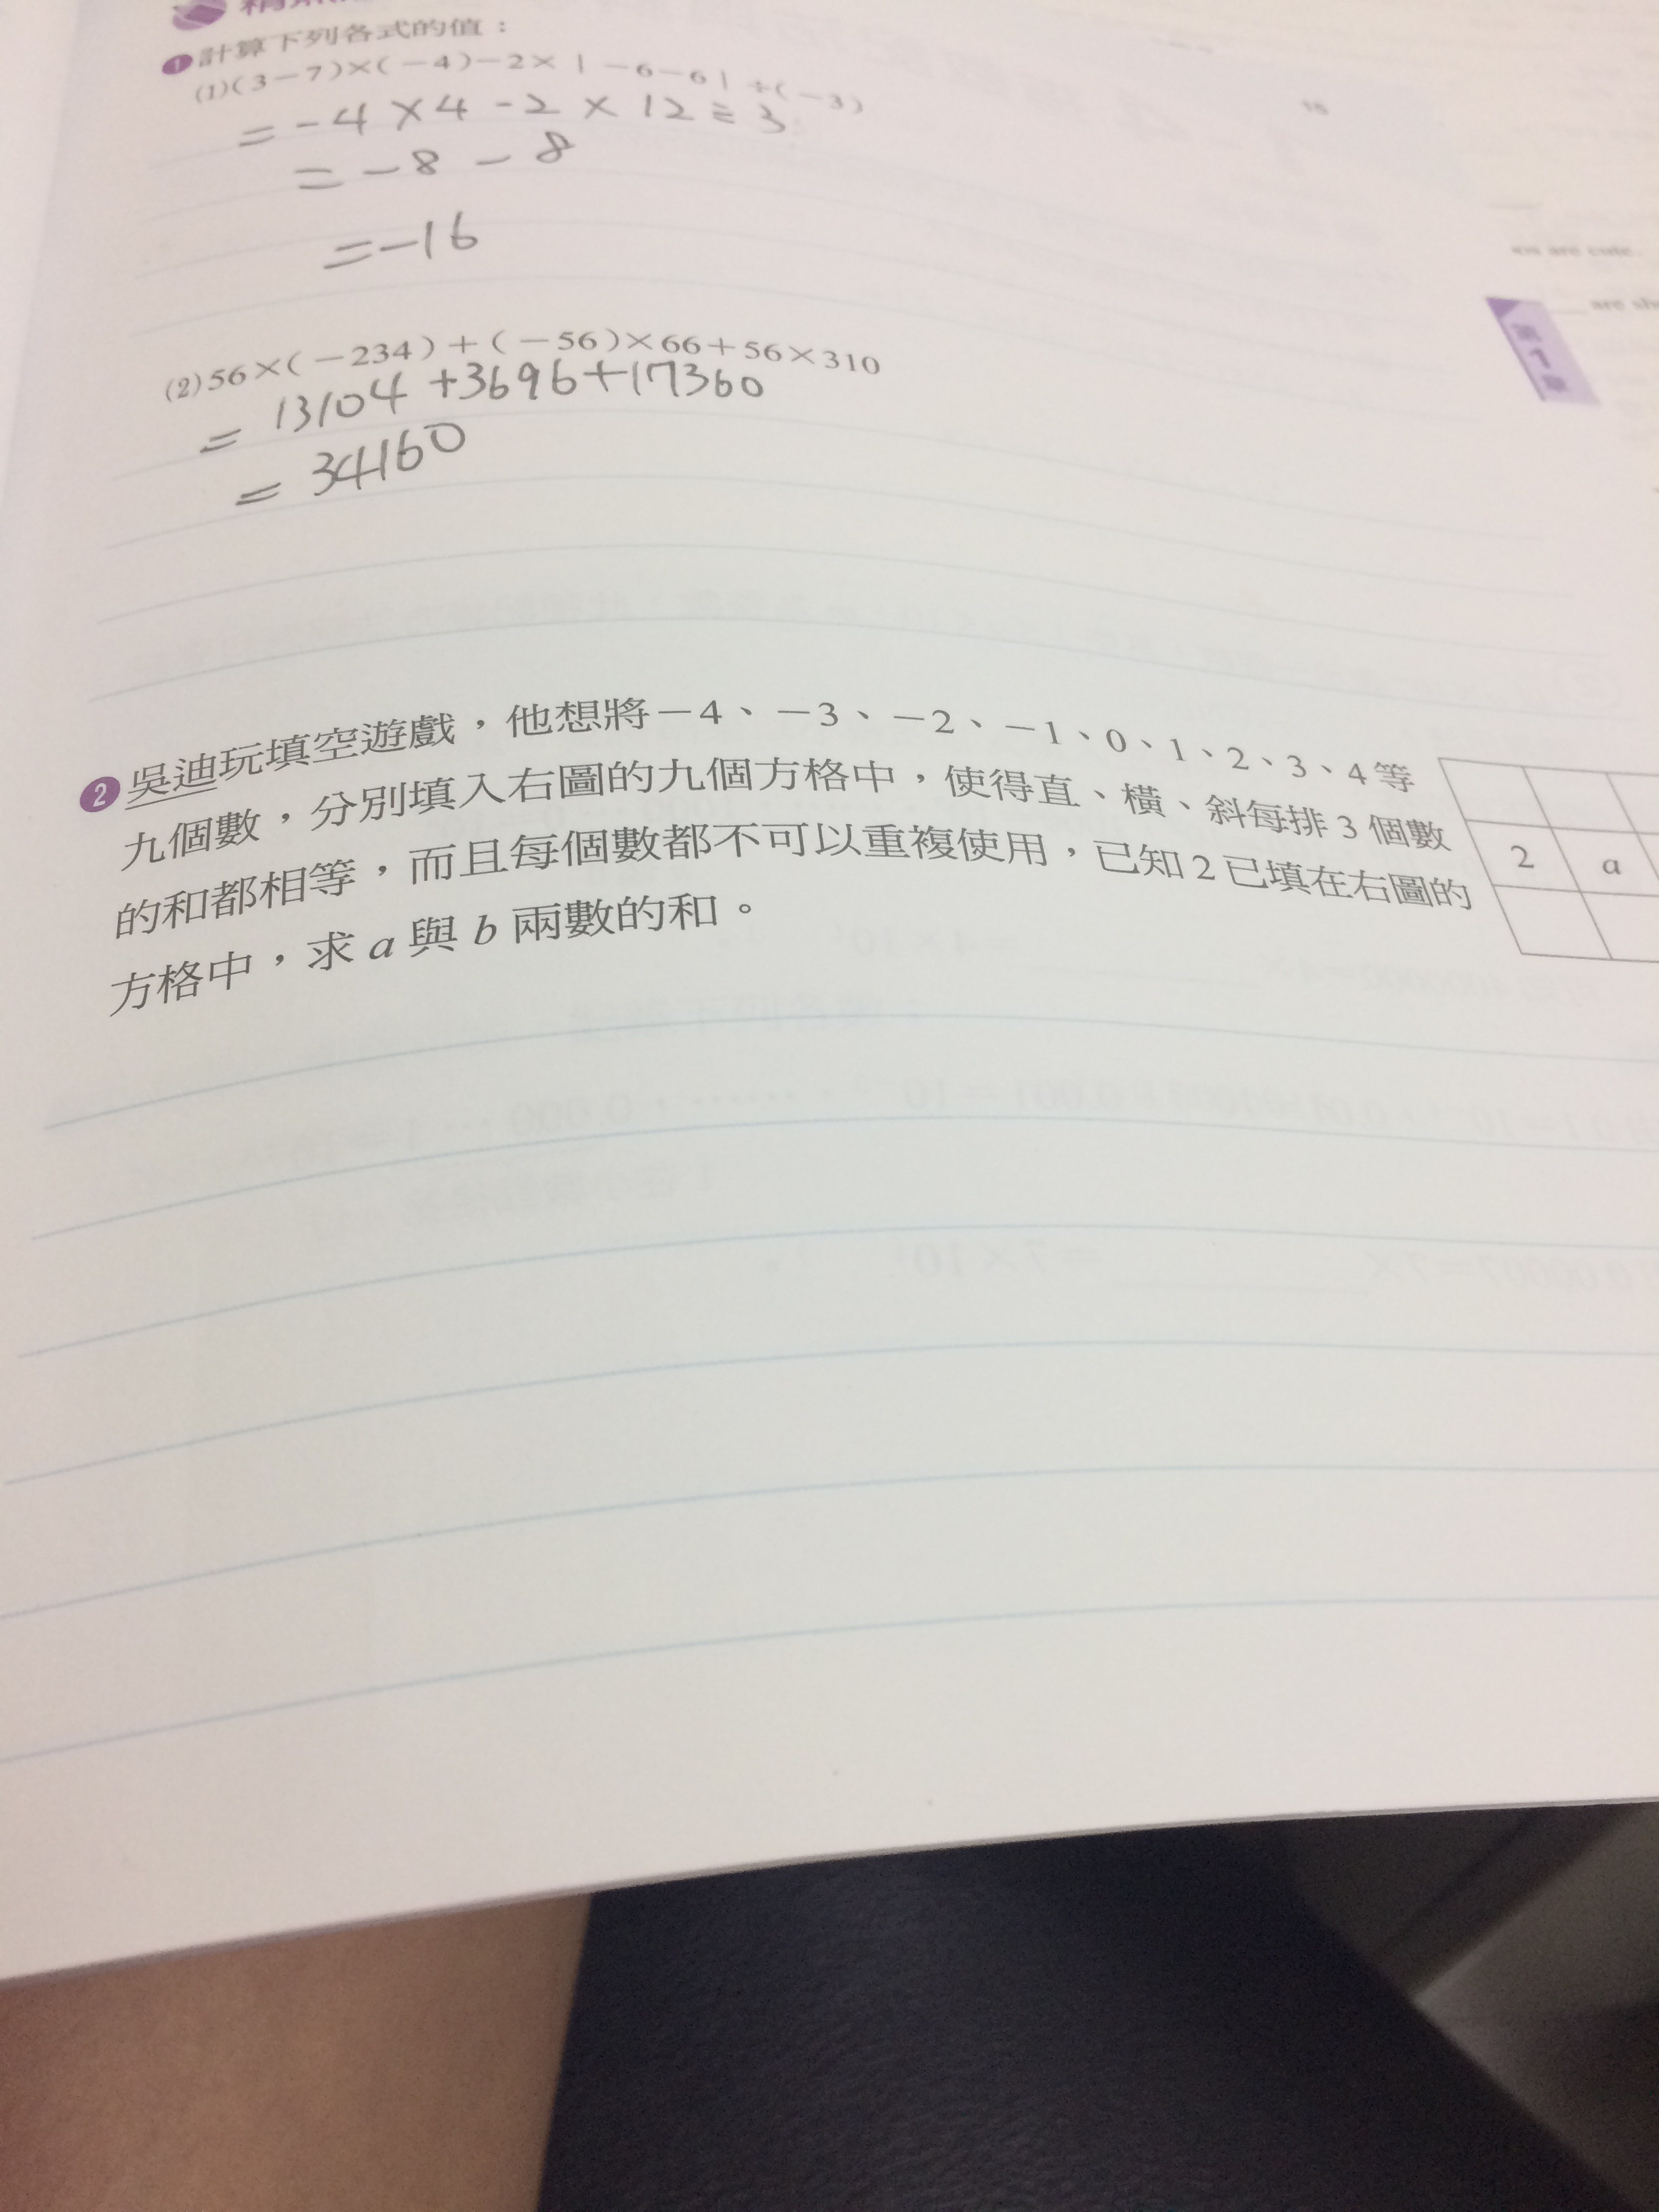 ❶計算下列各式的值：
(1)(3−7)×(−4)−2×|−6−6|÷(−3)
= -4 × 4 - 2 × 12 ÷ 3
= -8 - 8
= -16
(2)56×(−234)+(−56)×66+56×310
= 13104 + 3696 + 17360
= 34160
❷吳迪玩填空遊戲，他想將−4、−3、−2、−1、0、1、2、3、4等
九個數，分別填入右圖的九個方格中，使得直、橫、斜每排3個數
的和都相等，而且每個數都不可以重複使用，已知2已填在右圖的
方格中，求a與b兩數的和。
2 a
第1章
are cute.
are sh